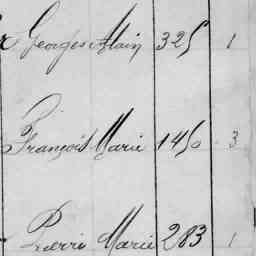 Georges Alain 325 1
François Marie 1450 3
Pierre Marie 283 1